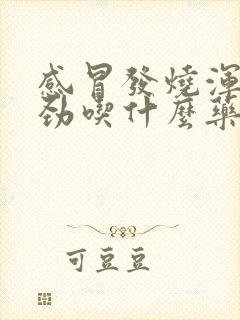 感冒發燒渾
勁喫什麼藥
可豆豆